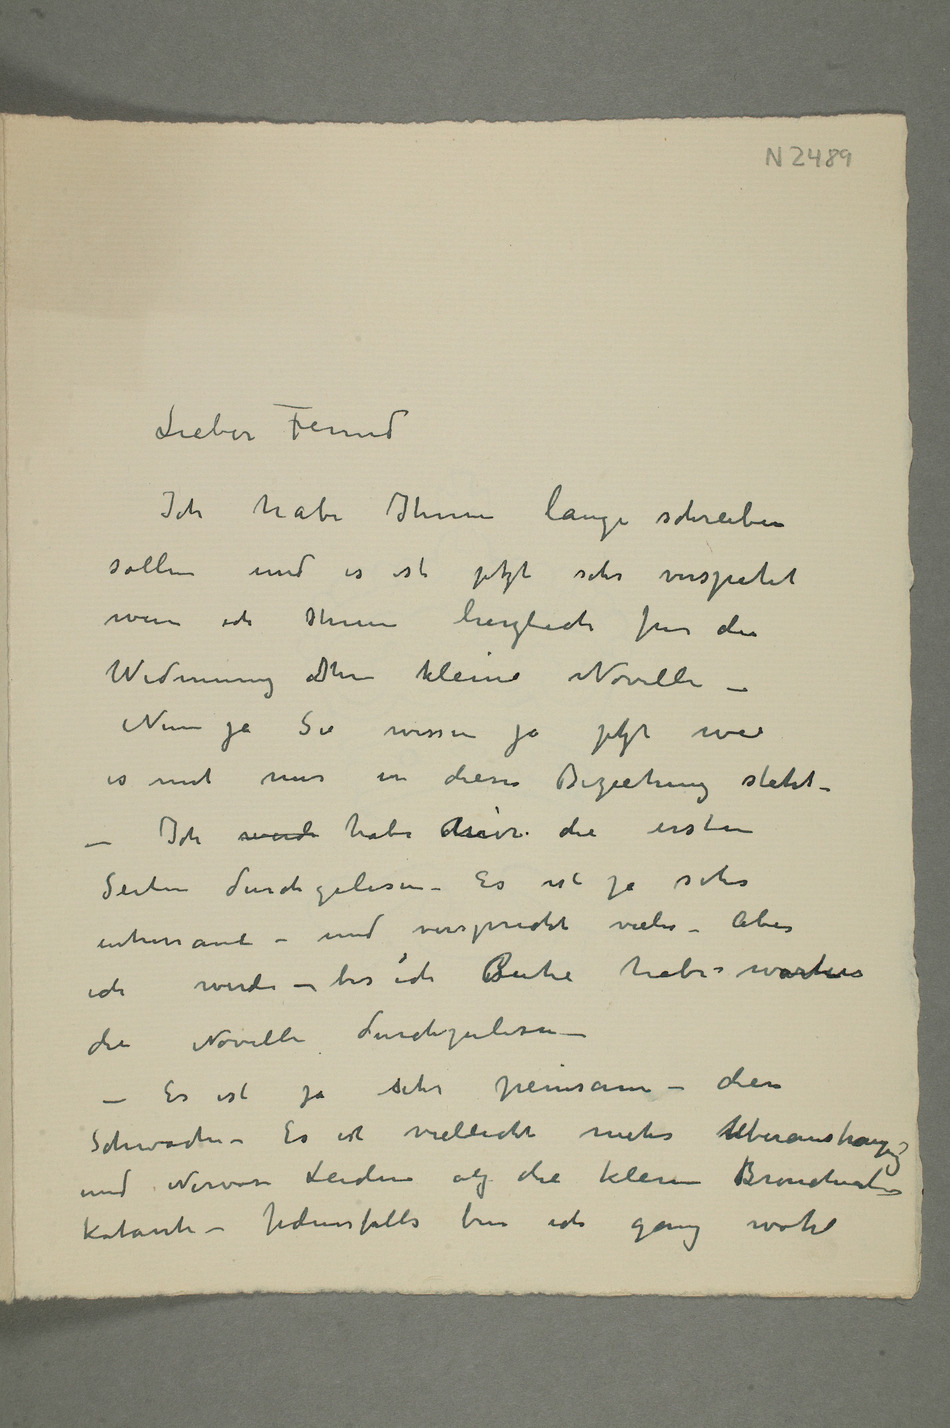 N 2489
Lieber Freund
Ich habe Ihnen lange schreiben
sollen und es ist jetzt sehr verspätet
wenn ich Ihnen herzlich für die
Widmung Ihre kleine Novelle –
Nun ja Sie wissen ja jetzt wie
es mit mir in dieser Beziehung steht –
– Ich werde habe die ersten
Seiten durchgelesen – Es ist ja sehr
interesant – und verspricht vieles – Aber
ich werde – bis ich Ruhe habe – warten
die Novelle durchzulesen –
– Es ist ja sehr peinsam – diese
Schwäche – Es ist vielleicht mehr Uberanstrengung
und Nervöse Leiden als die kleine Bronchial-
Katarrh – Jedenfalls bin ich ganz wohl